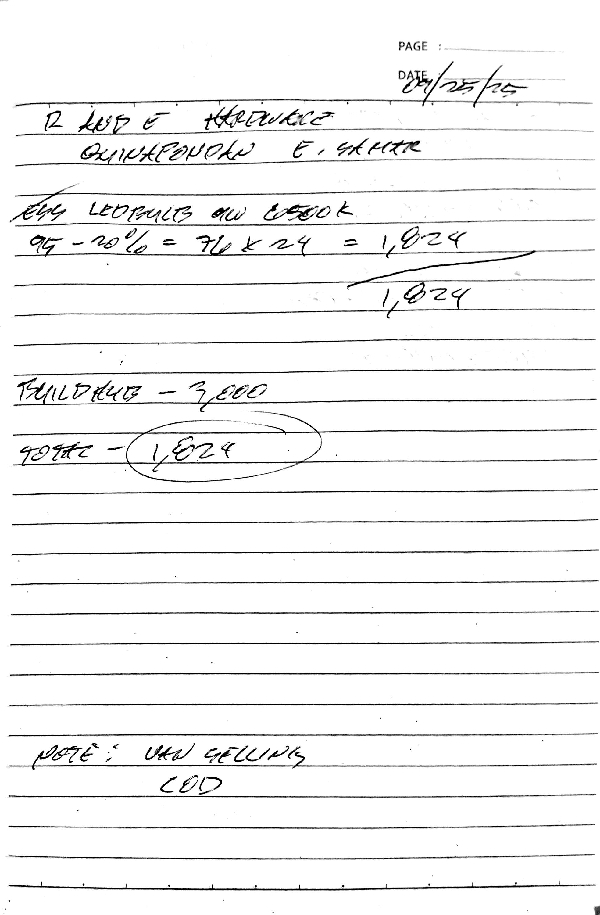 PAGE :
DATE 09/25/25
R AND E HARDWARE
QUINAPONDAN E. SAMAR
LEDBULB 9W 6500K
95 - 20% = 76 X 24 = 1,824
1,824
BUILDING - 3,000
TOTAL - 1,824
NOTE : VAN SELLING
COD